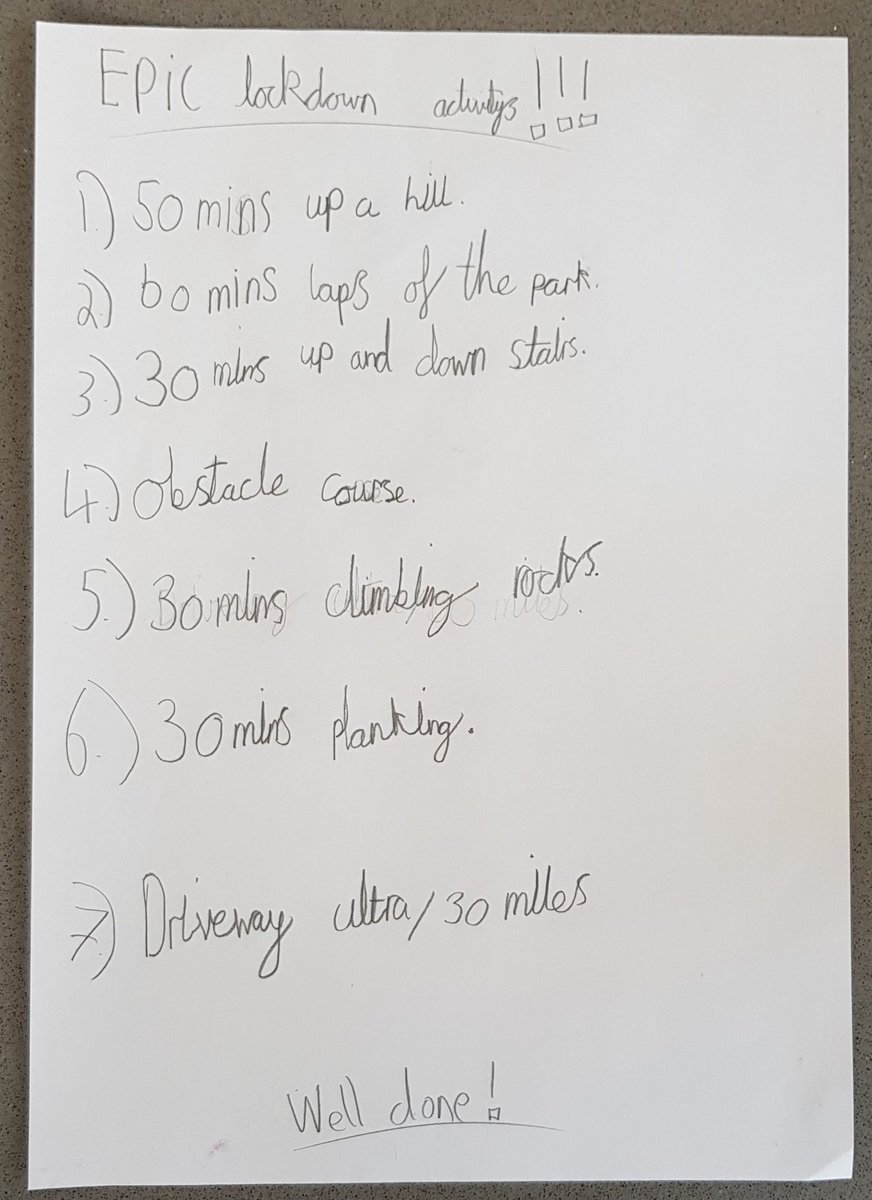 Epic lockdown activitys!!!
1.) 50 mins up a hill.
2.) 60 mins laps of the park.
3.) 30 mins up and down stairs.
4.) Obstacle course.
5.) 30 mins climbing rocks.
6.) 30 mins planking.
7.) Driveway ultra/30 miles
Well done!